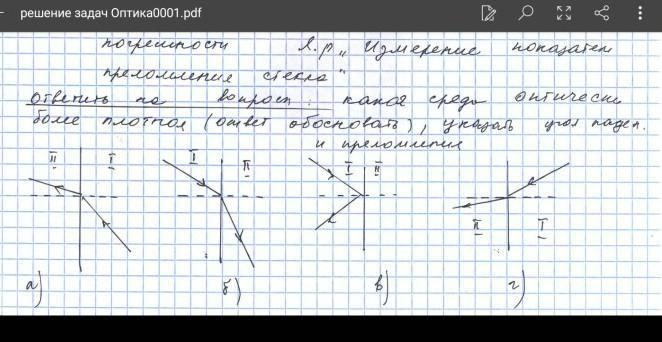 решение задач Оптика0001.pdf
погрешности Л.р „ Измерение показателя
преломление стекла "
ответить на вопрос: какая среда оптически
более плотная (ответ обосновать), указать угол паден.
и преломления
II I I II I II II I
а) б) в) г)